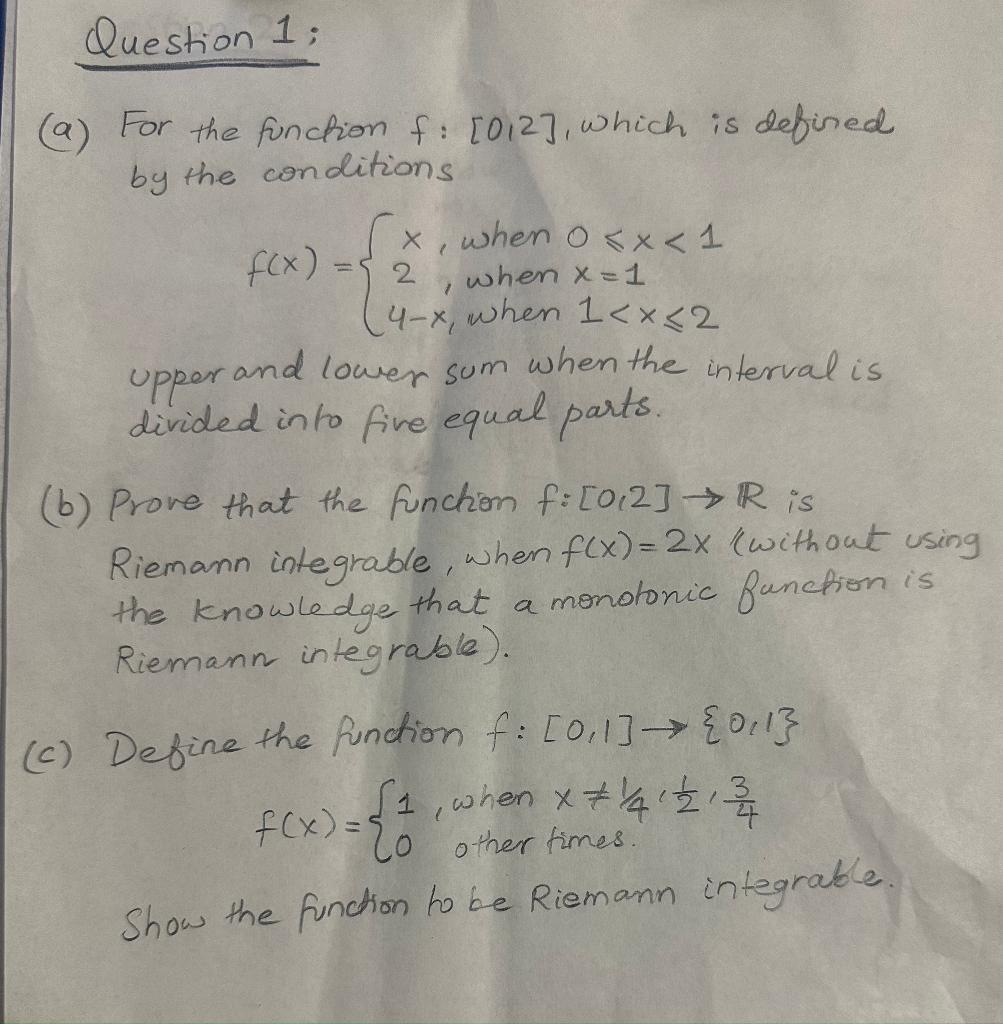 Question 1;
(a) For the function f: [0,2], which is defined
by the conditions
f(x) = { x , when 0 ≤ x < 1
2 , when x = 1
4-x, when 1 < x ≤ 2
upper and lower sum when the interval is
divided into five equal parts.
(b) Prove that the function f: [0,2] → ℝ is
Riemann integrable, when f(x) = 2x (without using
the knowledge that a monotonic function is
Riemann integrable).
(c) Define the function f: [0,1] → {0,1}
f(x) = { 1 , when x ≠ 1/4, 1/2, 3/4
0 other times.
Show the function to be Riemann integrable.